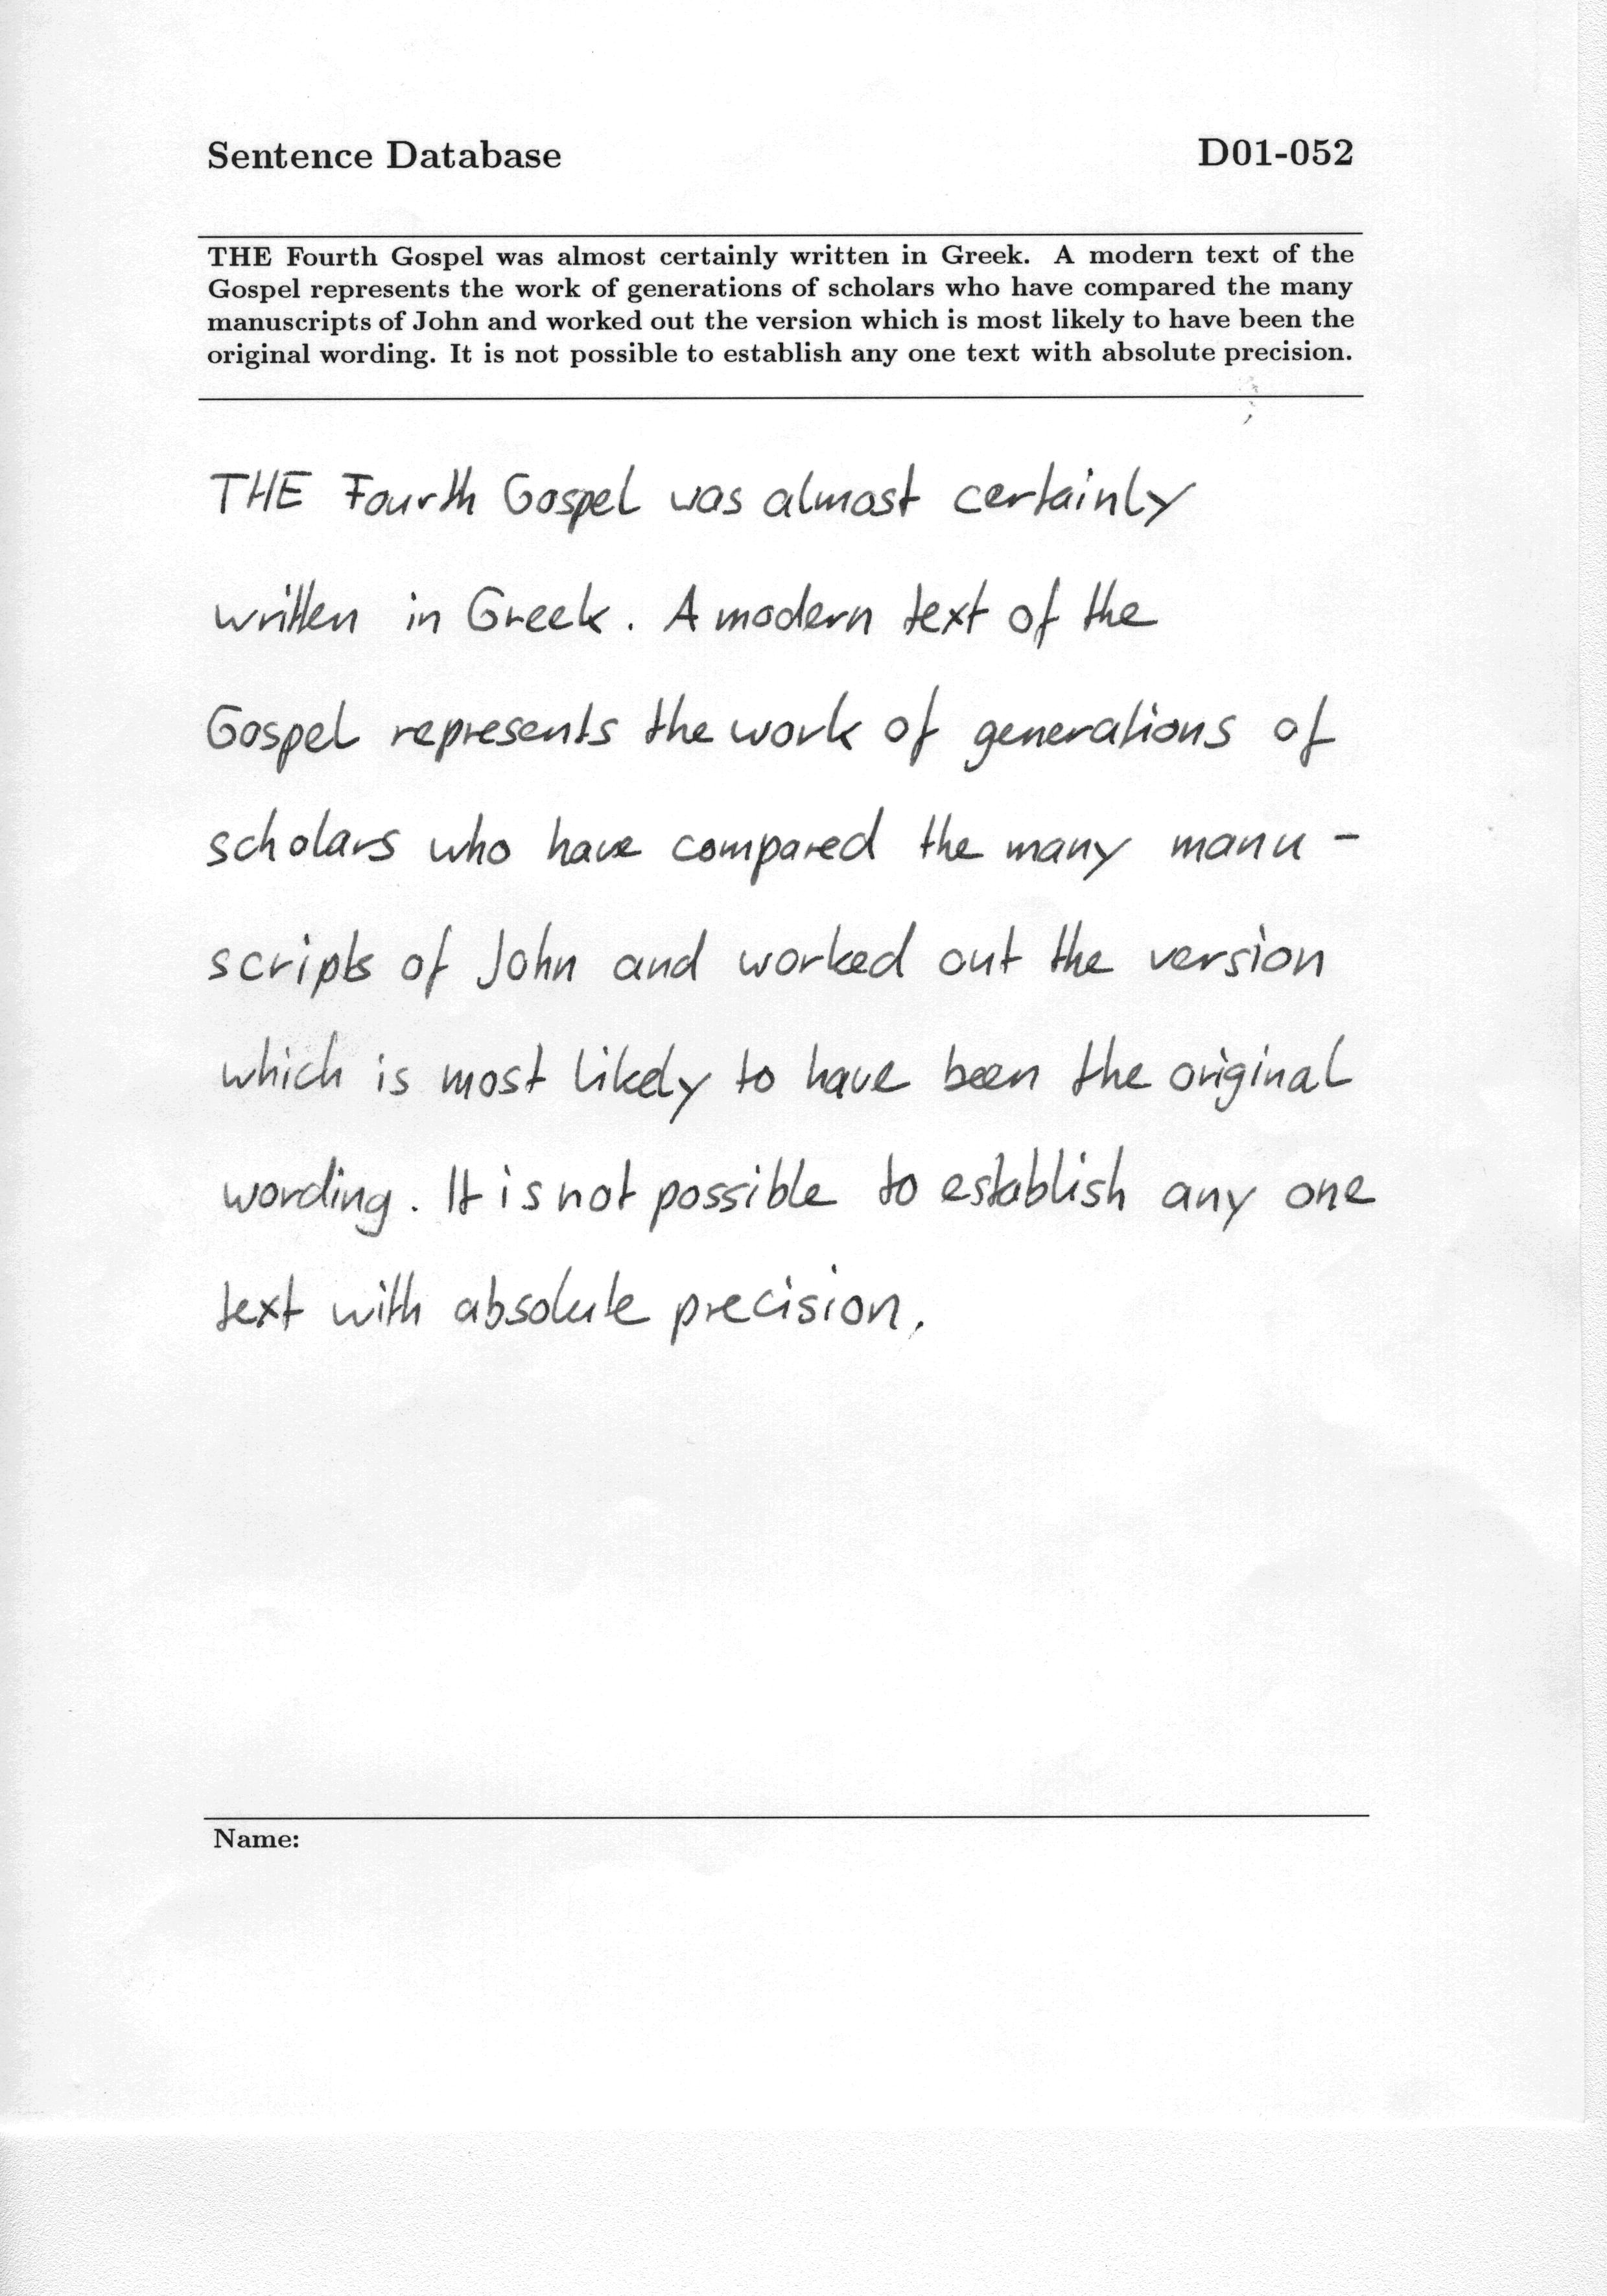 Sentence Database D01-052
THE Fourth Gospel was almost certainly written in Greek. A modern text of the
Gospel represents the work of generations of scholars who have compared the many
manuscripts of John and worked out the version which is most likely to have been the
original wording. It is not possible to establish any one text with absolute precision.
THE Fourth Gospel was almost certainly
written in Greek. A modern text of the
Gospel represents the work of generations of
scholars who have compared the many manu-
scripts of John and worked out the version
which is most likely to have been the original
wording. It is not possible to establish any one
text with absolute precision.
Name: